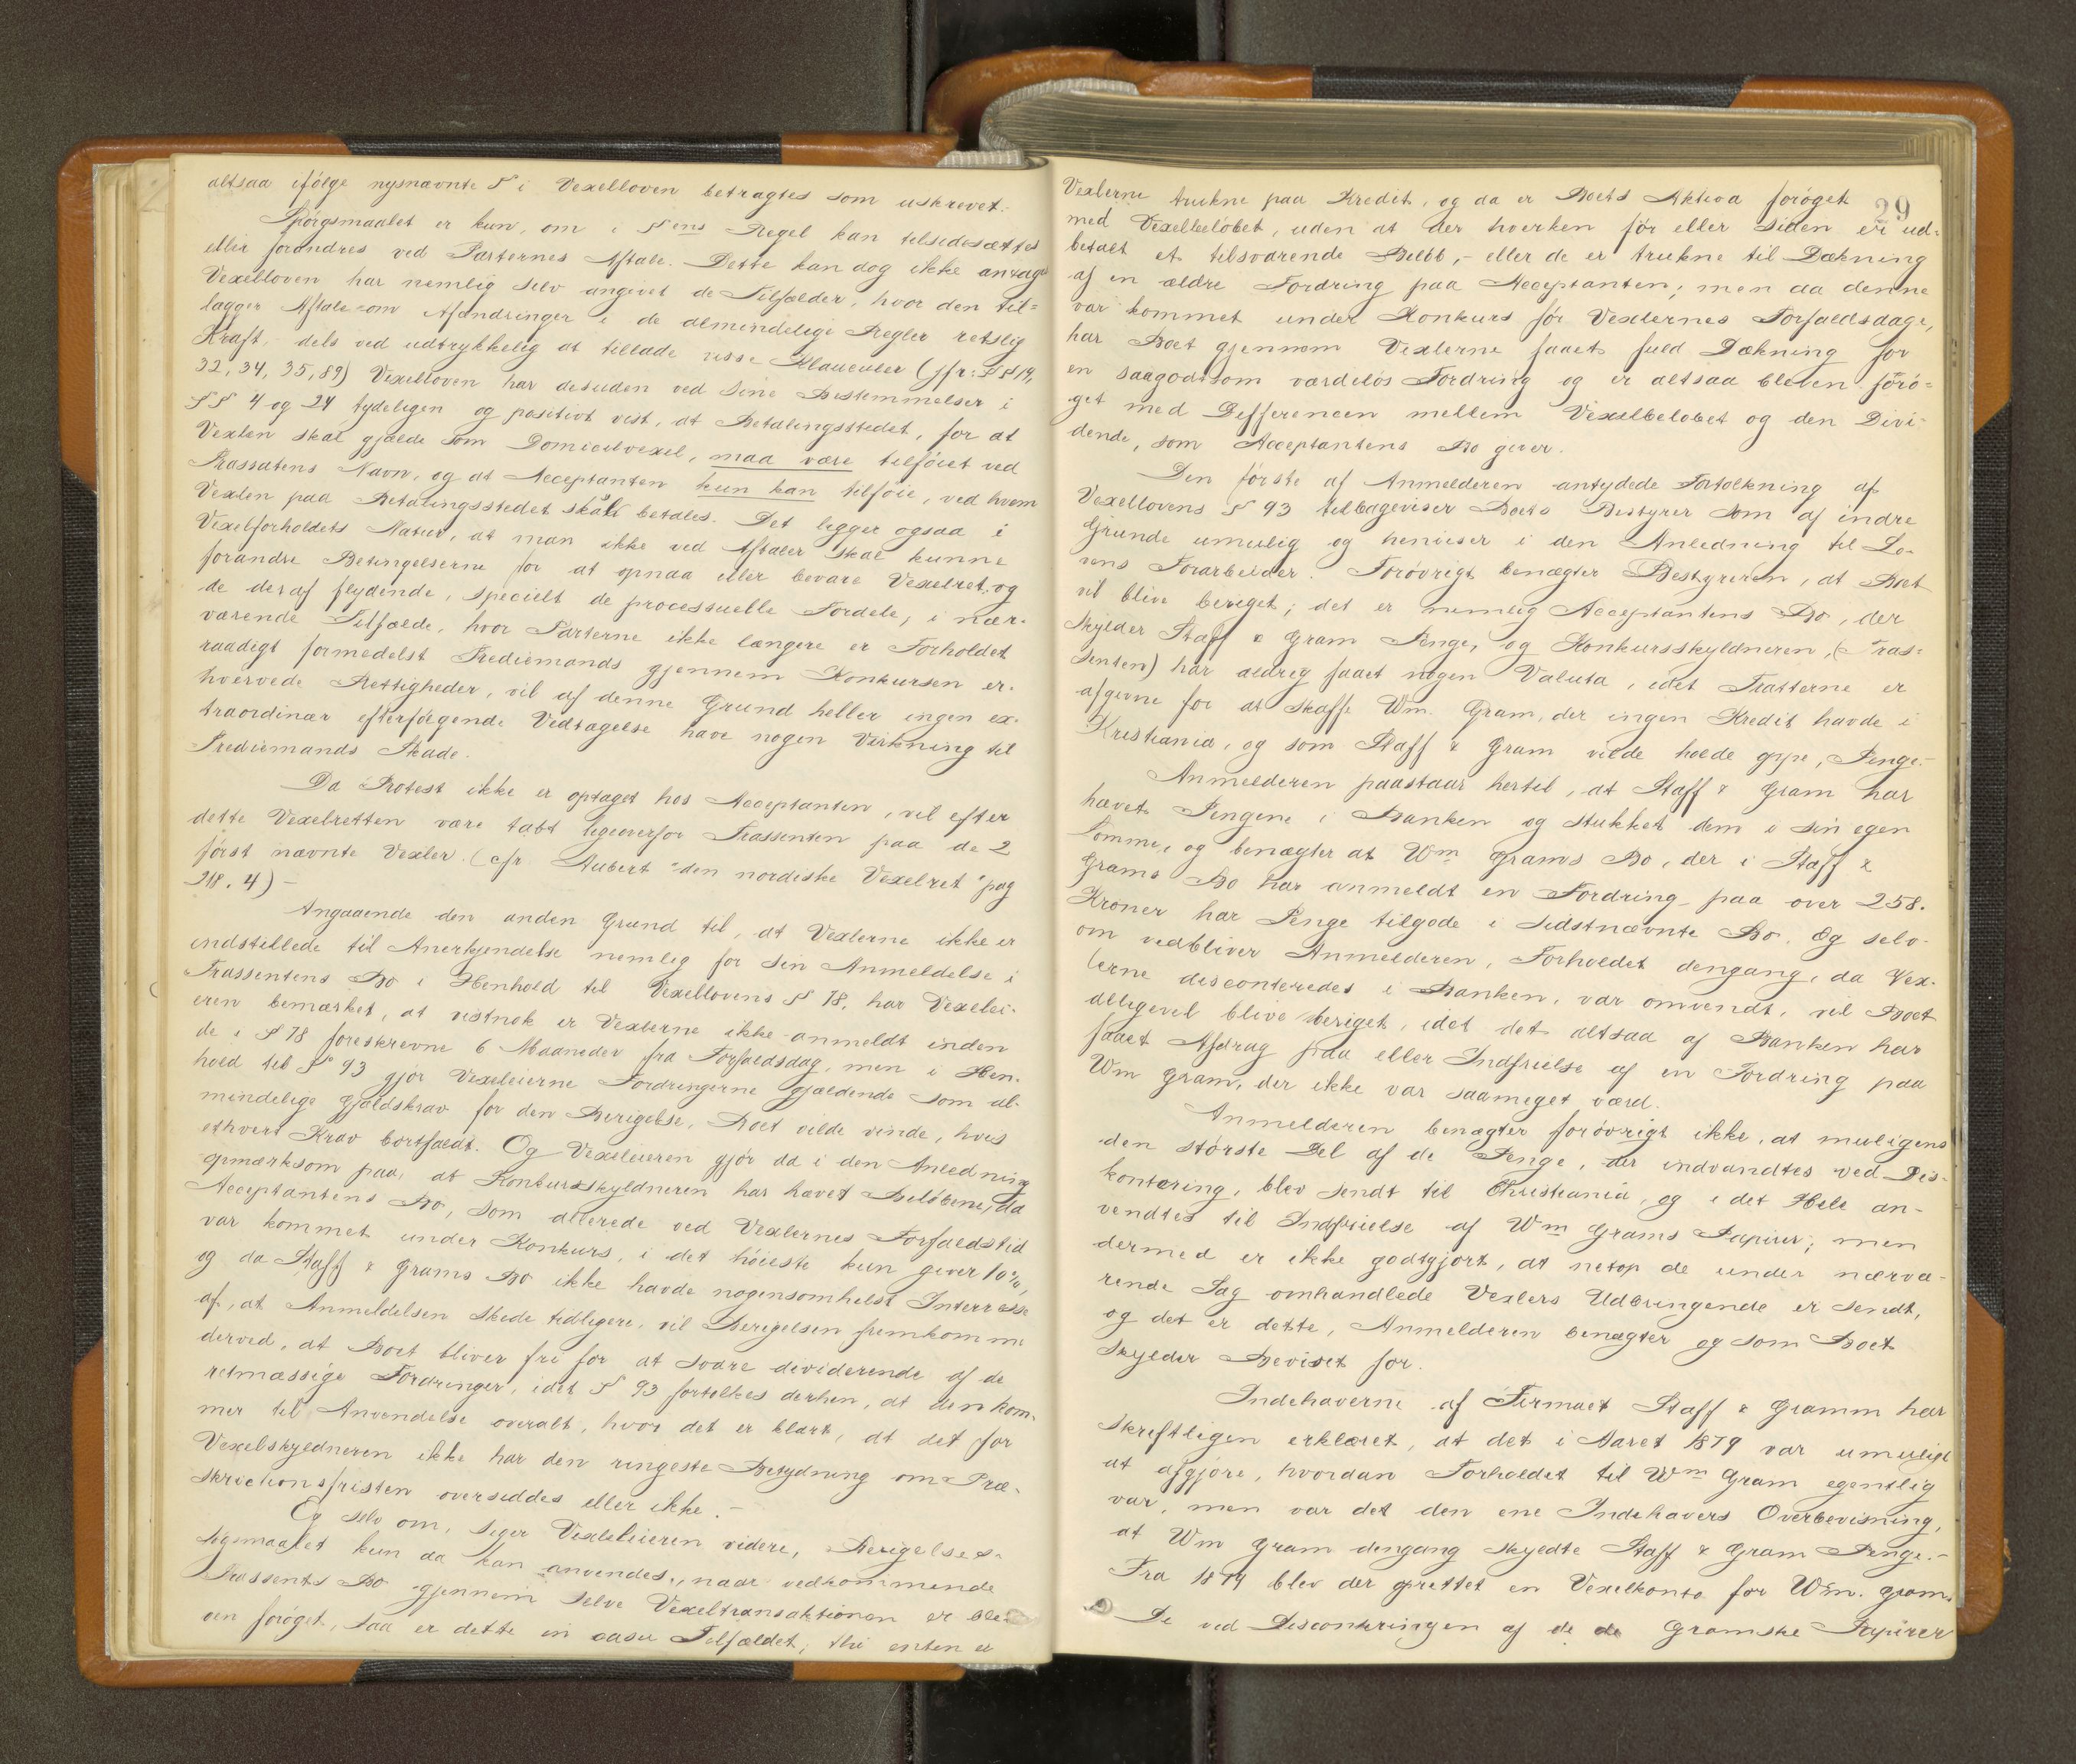 altsaa ifølge nysnævnte § i Vexelloven betragtes som uskrevet.
Spørgsmaalet er kun, om i § ens Regel kan tilsidesættes
eller forandres ved Parternes Aftale. Dette kan dog ikke antages
Vexelloven har nemlig selv angivet de Tilfælder, hvor den til-
lægger Aftale om Afændringer i de almindelige Regler retslig
Kraft, dels ved udtrykkelig at tillade visse Klauculer (jfr: §§ 19,
32, 34, 35, 89) Vexelloven har desuden ved sine Bestemmelser i
§§ 4 og 24 tydeligen og positivt vist, at Betalingsstedet, for at
Vexlen skal gjælde som Domicilvexel, maa være tilføiet ved
Trassatens Navn, og at Acceptanten kun kan tilføie, ved hvem
Vexlen paa Betalingsstedet skal betales. Det ligger ogsaa i
Vexelforholdets Natur, at man ikke ved Aftaler skal kunne
forandre Betingelserne for at opnaa eller bevare Vexelret, og
de deraf flydende, specielt de processuelle Fordele, i nær-
værende Tilfælde, hvor Parterne ikke længere er Forholdet
raadigt formedelst Trediemands gjennem Konkursen er-
hvervede Rettigheder, vil af denne Grund heller ingen ex-
traordinær efterfølgende Vedtagelse have nogen Virkning til
Trediemands Skade.
Da Protest ikke er optaget hos Acceptanten, vil efter
dette Vexelretten være tabt ligeoverfor Trassenten paa de 2
først nævnte Vexler. (cfr Aubert "den nordiske Vexelret" pag
218. 4) -
Angaaende den anden Grund til, at Vexlerne ikke er
indstillede til Anerkjendelse nemlig for sin Anmeldelse i
Trassentens Bo i Henhold til Vexellovens § 78, har Vexelei-
eren bemærket, at vistnok er Vexlerne ikke anmeldt inden
de i § 78 foreskrevne 6 Maaneder fra Forfaldsdag, men i Hen-
hold til § 93 gjør Vexeleierne Fordringerne gjældende som al-
mindelige Gjældskrav for den Berigelse, Boet vilde vinde, hvis
ethvert Krav bortfaldt. Og Vexeleieren gjør da i den Anledning
opmærksom paa, at Konkursskyldneren har hævet Beløbene, da
Acceptantens Bo, som allerede ved Vexlernes Forfaldstid
var kommet under Konkurs, i det høieste kun giver 10%,
og da Staff & Grams Bo ikke havde nogensomhelst Interresse
af, at Anmeldelsen skede tidligere, vil Berigelsen fremkomme
derved, at Boet bliver fri for at svare dividerende af de
retmæssige Fordringer, idet § 93 fortolkes derhen, at den kom-
mer til Anvendelse overalt, hvor det er klart, at det for
Vexelskyldneren ikke har den ringeste Betydning om Præ-
skriktionsfristen oversiddes eller ikke. -
Og selv om, siger Vexeleieren videre, Berigelses-
søgsmaalet kun da kan anvendes, naar vedkommende
Trassents Bo gjennem selve Vexeltransaktionen er ble-
ven forøget, saa er dette in casu Tilfældet; thi enten er
29
Vexlerne trukne paa Kredit, og da er Boets Aktiva forøget
med Vexelbeløbet, uden at der hverken før eller siden er ud-
betalt et tilsvarende Beløb, - eller de er trukne til Dækning
af en ældre Fordring paa Acceptanten; men da denne
var kommet under Konkurs før Vexlernes Forfaldsdage,
har Boet gjennem Vexlerne faaet fuld Dækning for
en saagodtsom værdiløs Fordring og er altsaa bleven forø-
get med Differencen mellem Vexelbeløbet og den Divi-
dende, som Acceptantens Bo giver.
Den første af Anmelderen antydede Fortolkning af
Vexellovens § 93 tilbageviser Boets Bestyrer som af indre
Grunde umulig og henviser i den Anledning til Lo-
vens Forarbeider. Forøvrigt benægter Bestyreren, at Boet
vil blive beriget; det er nemlig Acceptantens Bo, der
skylder Staff & Gram Penge, og Konkursskyldneren, (Tras-
senten) har aldrig faaet nogen Valuta, idet Tratterne er
afgivne for at skaffe Wm. Gram, der ingen Kredit havde i
Kristiania, og som Staff & Gram vilde holde oppe, Penge. -
Anmelderen paastaar hertil, at Staff & Gram har
hævet Pengene i Banken og stukket dem i sin egen
Lomme, og benægter at Wm Grams Bo, der i Staff &
Grams Bo har anmeldt en Fordring paa over 258.
Kroner har Penge tilgode i sidstnævnte Bo. Og selv-
om vedbliver Anmelderen, Forholdet dengang, da Vex-
lerne disconteredes i Banken, var omvendt, vil Boet
alligevel blive beriget, idet det altsaa af Banken har
faaet Afdrag paa eller Indfrielse af en Fordring paa
Wm Gram, der ikke var saameget værd.
Anmelderen benægter forøvrigt ikke, at muligens
den største Del af de Penge, der indvandtes ved Dis-
kontering, blev sendt til Christiania, og i det Hele an-
vendtes til Indfrielse af Wm Grams Papirer; men
dermed er ikke godtgjort, at netop de under nærvæ-
rende Sag omhandlede Vexlers Udbringende er sendt,
og det er dette, Anmelderen benægter og som Boet
skylder Beviset for.
Indehaverne af Firmaet Staff & Gramm har
skriftligen erklæret, at det i Aaret 1879 var umuligt
at afgjøre, hvordan Forholdet til Wm Gram egentlig
var, men var det den ene Indehavers Overbevisning,
at Wm Gram dengang skyldte Staff & Gram Penge. -
Fra 1879 blev der oprettet en Vexelkonto for Wm. Gram.
De ved Disconteringen af de de Gramske Papirer